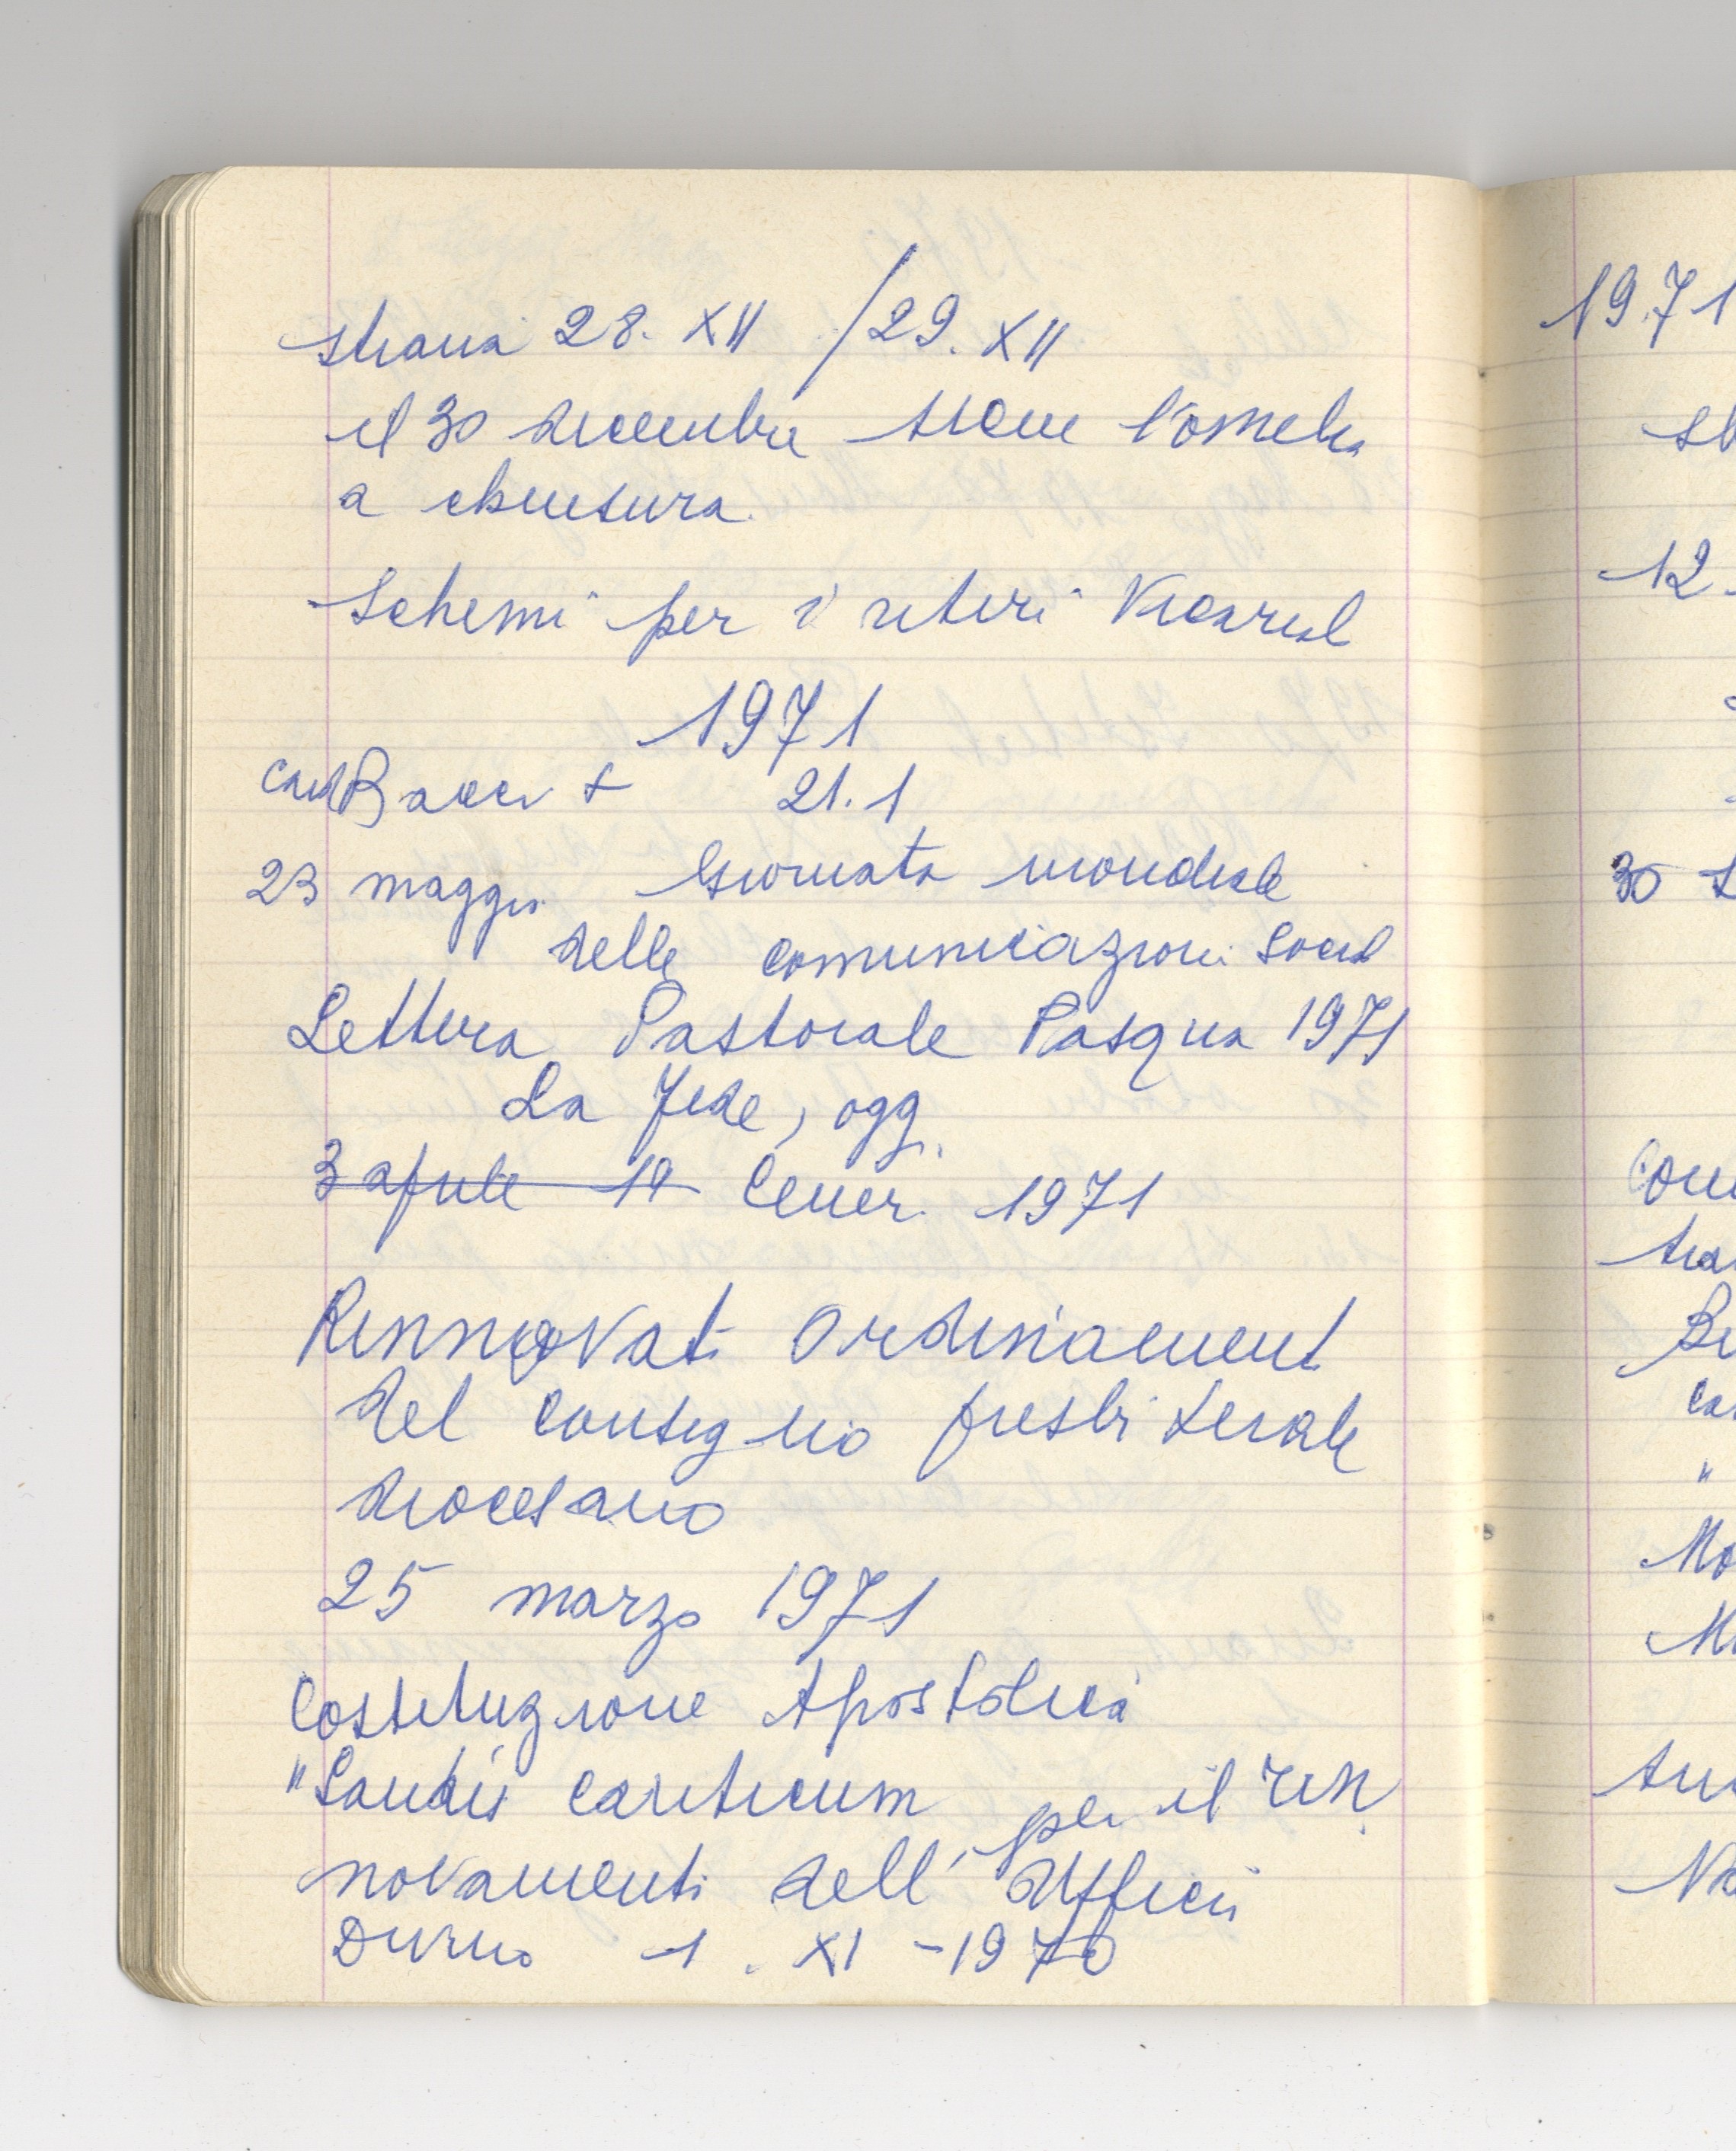 strana 28. XII / 29. XII
il 30 dicembre tiene l'omelia
a chiusura.
Schemi per i ritiri Vicarial
1971
Card Bacci + 21.1
23 maggio Giornata mondiale
delle comunicazioni Social
Lettera Pastorale Pasqua 1971
La Fede, oggi
3 aprile 19 Cener. 1971
Rinnovati Ordinament
del Consiglio presbiterale
diocesano
25 marzo 1971
Costituzione Apostolica
"Laudis canticum per il rin
novamenti dell' Ufficii
Divino 1. XI - 1970
1971
12
30